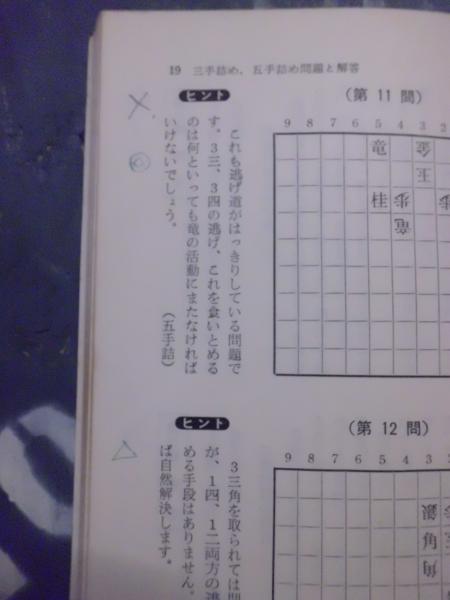 19 三手詰め、五手詰め問題と解答
(第 11 問)
9 8 7 6 5 4 3 2
竜 金
玉
桂 歩 歩
竜
ヒント
これも逃げ道がはっきりしている問題で
す。3三、3四の逃げ、これを食いとめる
のは何といっても竜の活動にまたなければ
いけないでしょう。
(五手詰)
(第 12 問)
9 8 7 6 5 4 3
銀
角
角
ヒント
3三角を取られては問
が、1四、1二両方の逃
める手段はありません。
ば自然解決します。